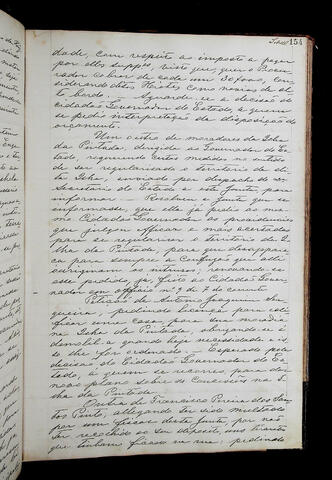 154
dade, com respeito ao imposto a pagar
por elles suppos, visto que, quer o Procu-
rador cobrar de cada um 30$000, con-
siderando ditos Hiates como navios de al-
to bordo. Aguarde-se a decisão do
Cidadão Governador do Estado, a quem
se pedio interpretação da disposição do
orçamento.
Um outro de moradores da Ilha
da Pintada, dirigido ao Governador do Es-
tado, requerendo certas medidas no sentido
de ser regularisado o territorio da di-
ta Ilha, enviado por despacho da
Secretaria do Estado a esta Junta para
informar. Resolveu a Junta que se
informasse que ella já pedio ao mes-
mo Cidadão Governador as providencias
que julgou efficaz e mais acertadas
para se regularisar o territorio da I-
lha da Pintada, para que desappare-
ça para sempre a confusão que alli
originaram os intrusos; renovando-se
esse pedido, já feito ao Cidadão Gover-
nador em officio nº 9 de 7 do corrente
Petição de Antonio Joaquim Cer-
queira, pedindo licença para edi-
ficar uma casa para sua moradia
na Ilha da Pintada, obrigando-se a
demolil-a quando haja necessidade e is-
to lhe for ordenado. Esperado pela
decisão do Cidadão Governador do Es-
tado, a quem se recorreu, para dar
novo plano sobre as concessões na I-
lha da Pintada.
Outra de Francisco Pereira dos San-
tos Pinto, allegando ter sido multado
por um fiscal desta Junta, por não
ter recolhido ao seu deposito, uns tirantes
que tinham ficado na rua; pedindo